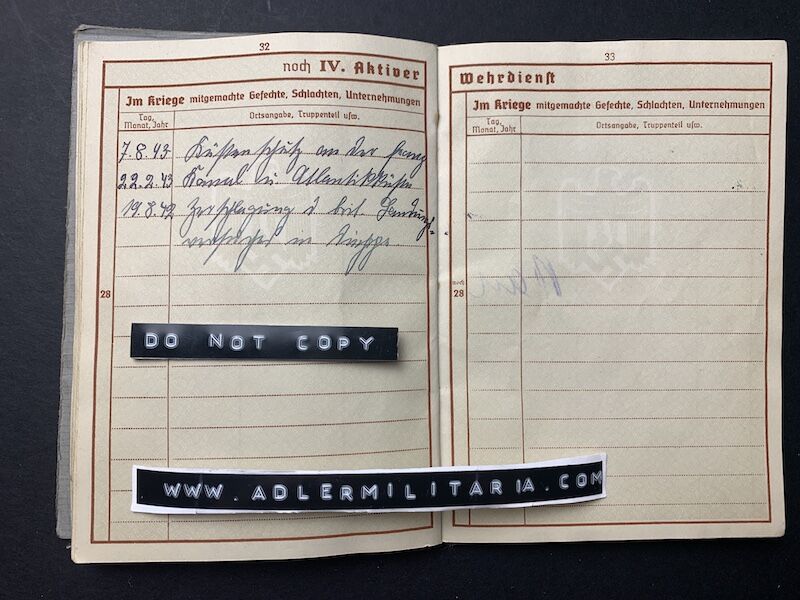 32
noch IV. Aktiver
Im Kriege mitgemachte Gefechte, Schlachten, Unternehmungen
Tag, Monat, Jahr
Ortsangabe, Truppenteil usw.
7.8.43 Küstenschutz an der franz
22.2.43 Kanal u. Atlantikküste
19.8.42 Zerschlagung d. brit. Landungs-
versuches in Dieppe.
28
DO NOT COPY
WWW.ADLERMILITARIA.COM
33
Wehrdienst
Im Kriege mitgemachte Gefechte, Schlachten, Unternehmungen
Tag, Monat, Jahr
Ortsangabe, Truppenteil usw.
noch
28